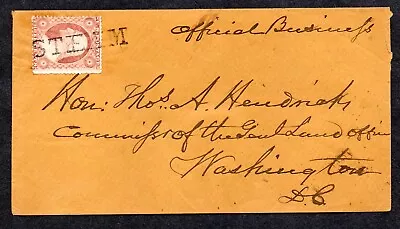 STEAM
Official Business
Hon: Thos A. Hendricks
Commissr of the Genl Land office
Washington
D.C.